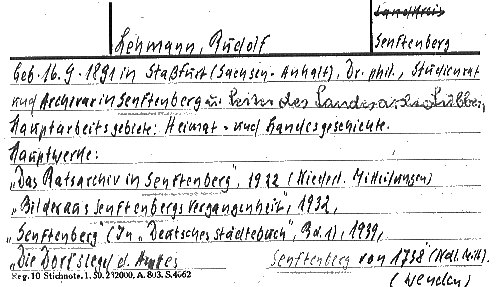 Landkreis
Lehmann, Rudolf
Senftenberg
Geb. 16.9.1891 in Staßfurt (Sachsen-Anhalt), Dr. phil., Studienrat
und Archivar in Senftenberg u. Leiter des Landesarch. Lübben,
Hauptarbeitsgebiete: Heimat- und Landesgeschichte.
Hauptwerke:
„Das Ratsarchiv in Senftenberg", 1922 (Niederl. Mitteilungen)
„Bilder aus Senftenbergs Vergangenheit", 1932,
„Senftenberg (In „Deutsches Städtebuch", Bd. 1), 1939,
„Die Dorfsiegel d. Amtes Senftenberg von 1758" (Ndl. Mitt.)
Reg. 10 Stichnote. 1. 50. 232000, A. 803. S. 4662
(wenden)